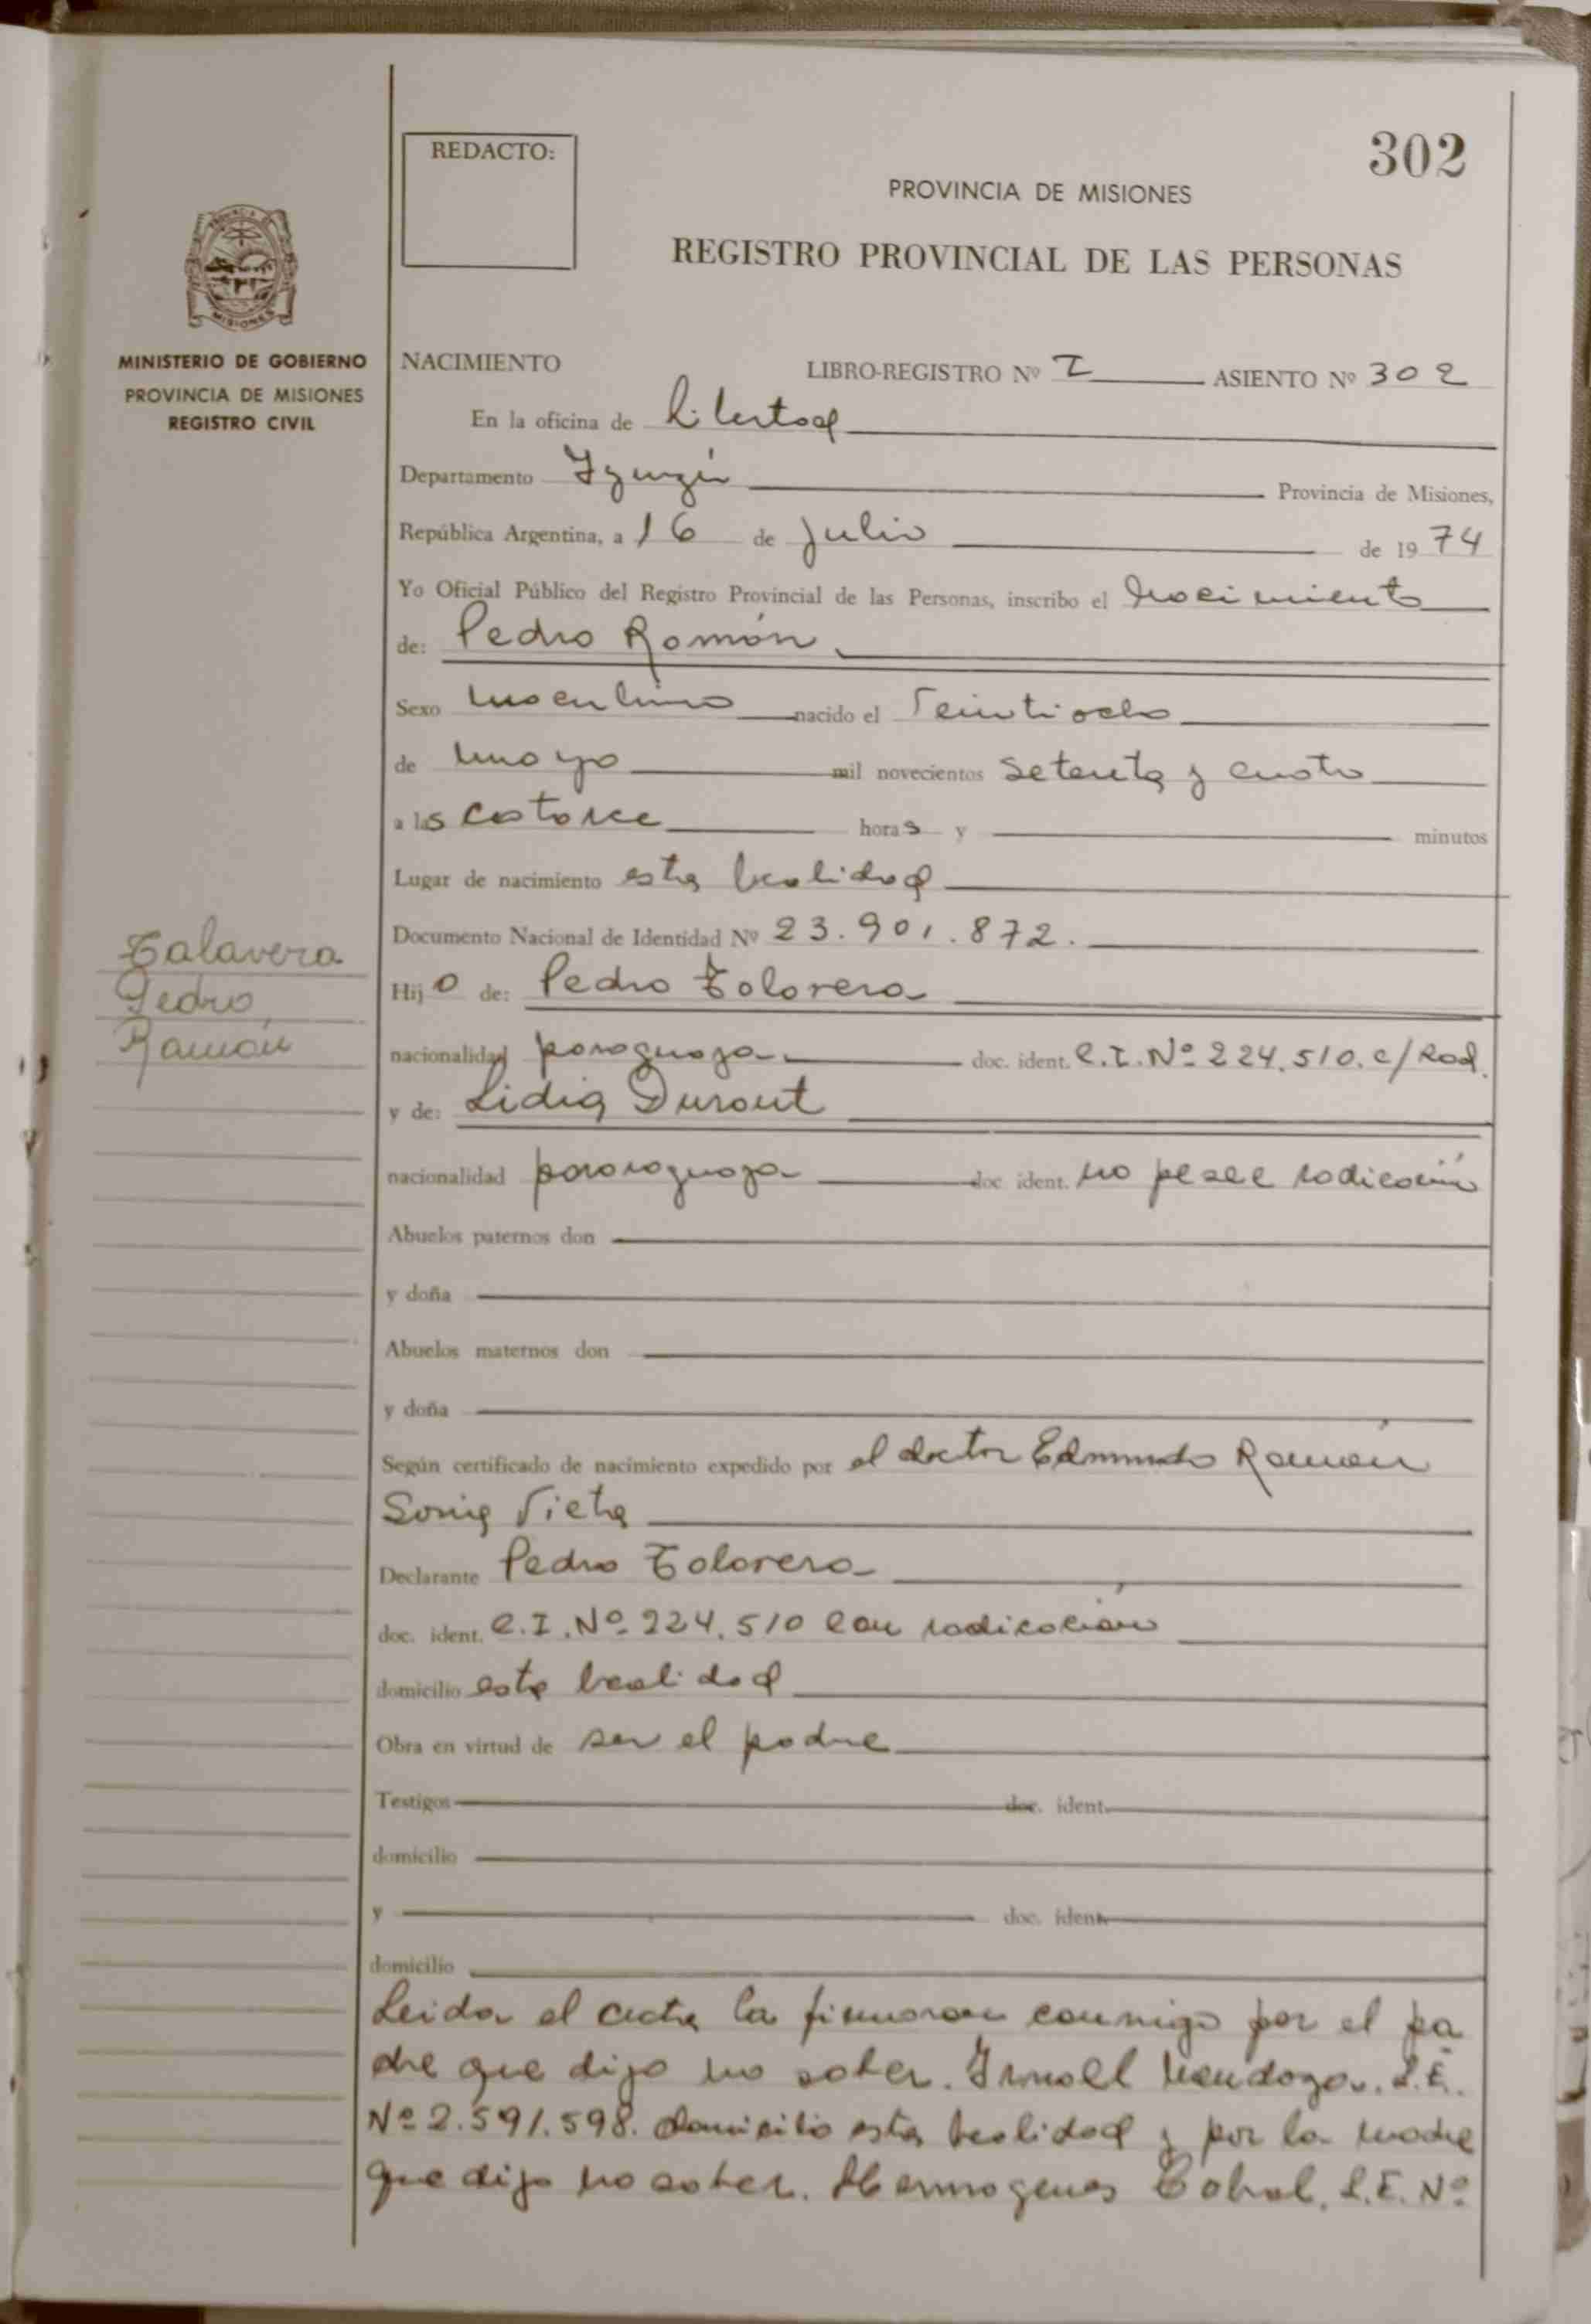 302
REDACTO:
PROVINCIA DE MISIONES
REGISTRO PROVINCIAL DE LAS PERSONAS
MISIONES
MINISTERIO DE GOBIERNO
PROVINCIA DE MISIONES
REGISTRO CIVIL
NACIMIENTO LIBRO-REGISTRO Nº I ASIENTO Nº 302
En la oficina de Libertad
Departamento Iguazú Provincia de Misiones,
República Argentina, a 16 de Julio de 1974
Yo Oficial Público del Registro Provincial de las Personas, inscribo el nacimiento
de: Pedro Ramón
Sexo masculino nacido el veintiocho
de mayo mil novecientos setenta y cuatro
a las catorce horas y minutos
Lugar de nacimiento esta localidad
Documento Nacional de Identidad Nº 23.901.872.
Talavera
Pedro
Ramón
Hijo de: Pedro Talavera
nacionalidad paraguaya doc. ident. C.I. Nº 224.510. c/ Rad.
y de: Lidia Durout
nacionalidad pararaguaya doc ident. no posee radicación
Abuelos paternos don
y doña
Abuelos maternos don
y doña
Según certificado de nacimiento expedido por el doctor Edmundo Ramón
Vieta
Declarante Pedro Talavera
doc. ident. C.I. Nº 224.510 con radicación
domicilio esta localidad
Obra en virtud de ser el padre
Testigos doc. ident.
domicilio
y doc. ident.
domicilio
Leida el acta la firmaron conmigo por el pa
dre que dijo no saber. Mendoza. L.E.
Nº 2.591.598. domicilio esta localidad y por la madre
que dijo no saber. Hermogenes Cabral. L.E. Nº